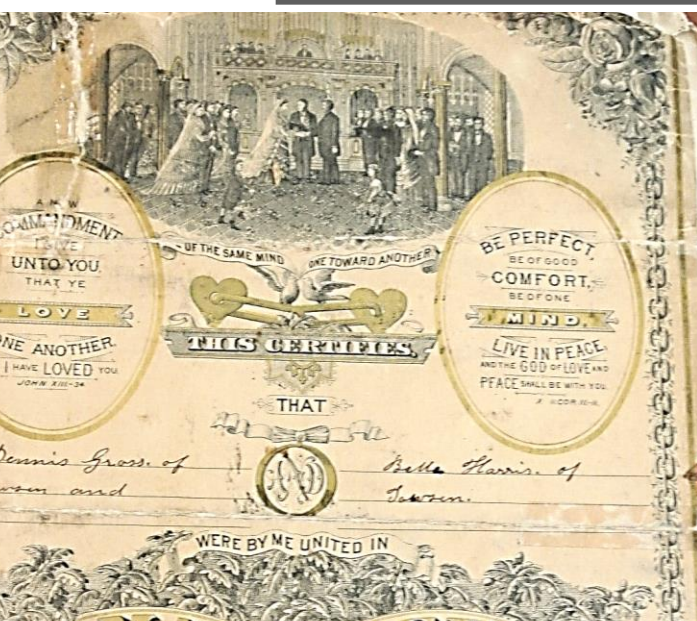 A NEW
COMMANDMENT
I GIVE
UNTO YOU,
THAT YE
LOVE
ONE ANOTHER.
I HAVE LOVED YOU.
JOHN XIII-34
OF THE SAME MIND ONE TOWARD ANOTHER
THIS CERTIFIES,
THAT
BE PERFECT,
BE OF GOOD
COMFORT,
BE OF ONE
MIND,
LIVE IN PEACE,
AND THE GOD OF LOVE AND
PEACE SHALL BE WITH YOU.
Dennis Gross. of Bella Harris. of
and Towson.
WERE BY ME UNITED IN